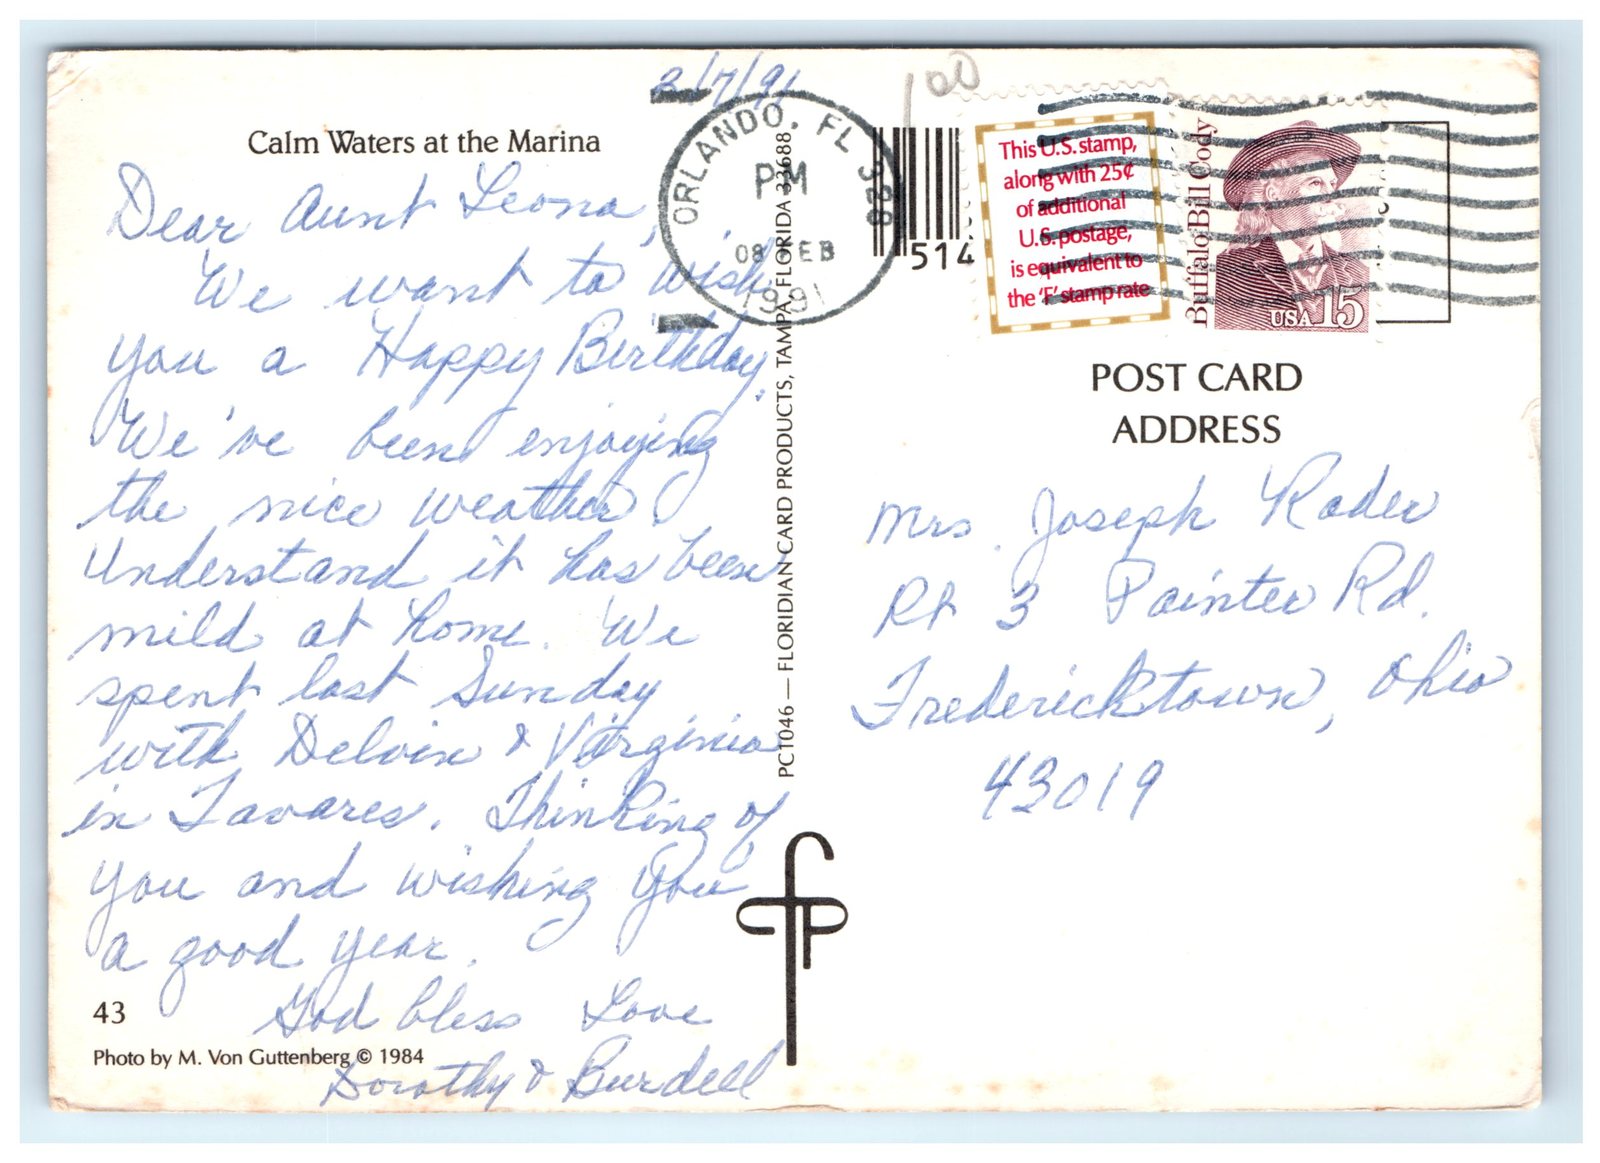 2/7/91
100
Calm Waters at the Marina
ORLANDO, FL 328
PM
08 FEB
1991
514
This U.S. stamp,
along with 25¢
of additional
U.S. postage,
is equivalent to
the 'F' stamp rate
Buffalo Bill Cody
USA 15
Dear Aunt Leona,
We want to wish
you a Happy Birthday.
We've been enjoying
the nice weather
Understand it has been
mild at home. We
spent last Sunday
with Delvin & Virginia
in Tavares. Thinking of
you and wishing you
a good year.
God bless Love
Dorothy & Burdell
43
Photo by M. Von Guttenberg © 1984
PC1046 — FLORIDIAN CARD PRODUCTS, TAMPA, FLORIDA 33688
fcp
POST CARD
ADDRESS
Mrs. Joseph Rader
Rt 3 Painter Rd.
Fredericktown, Ohio
43019